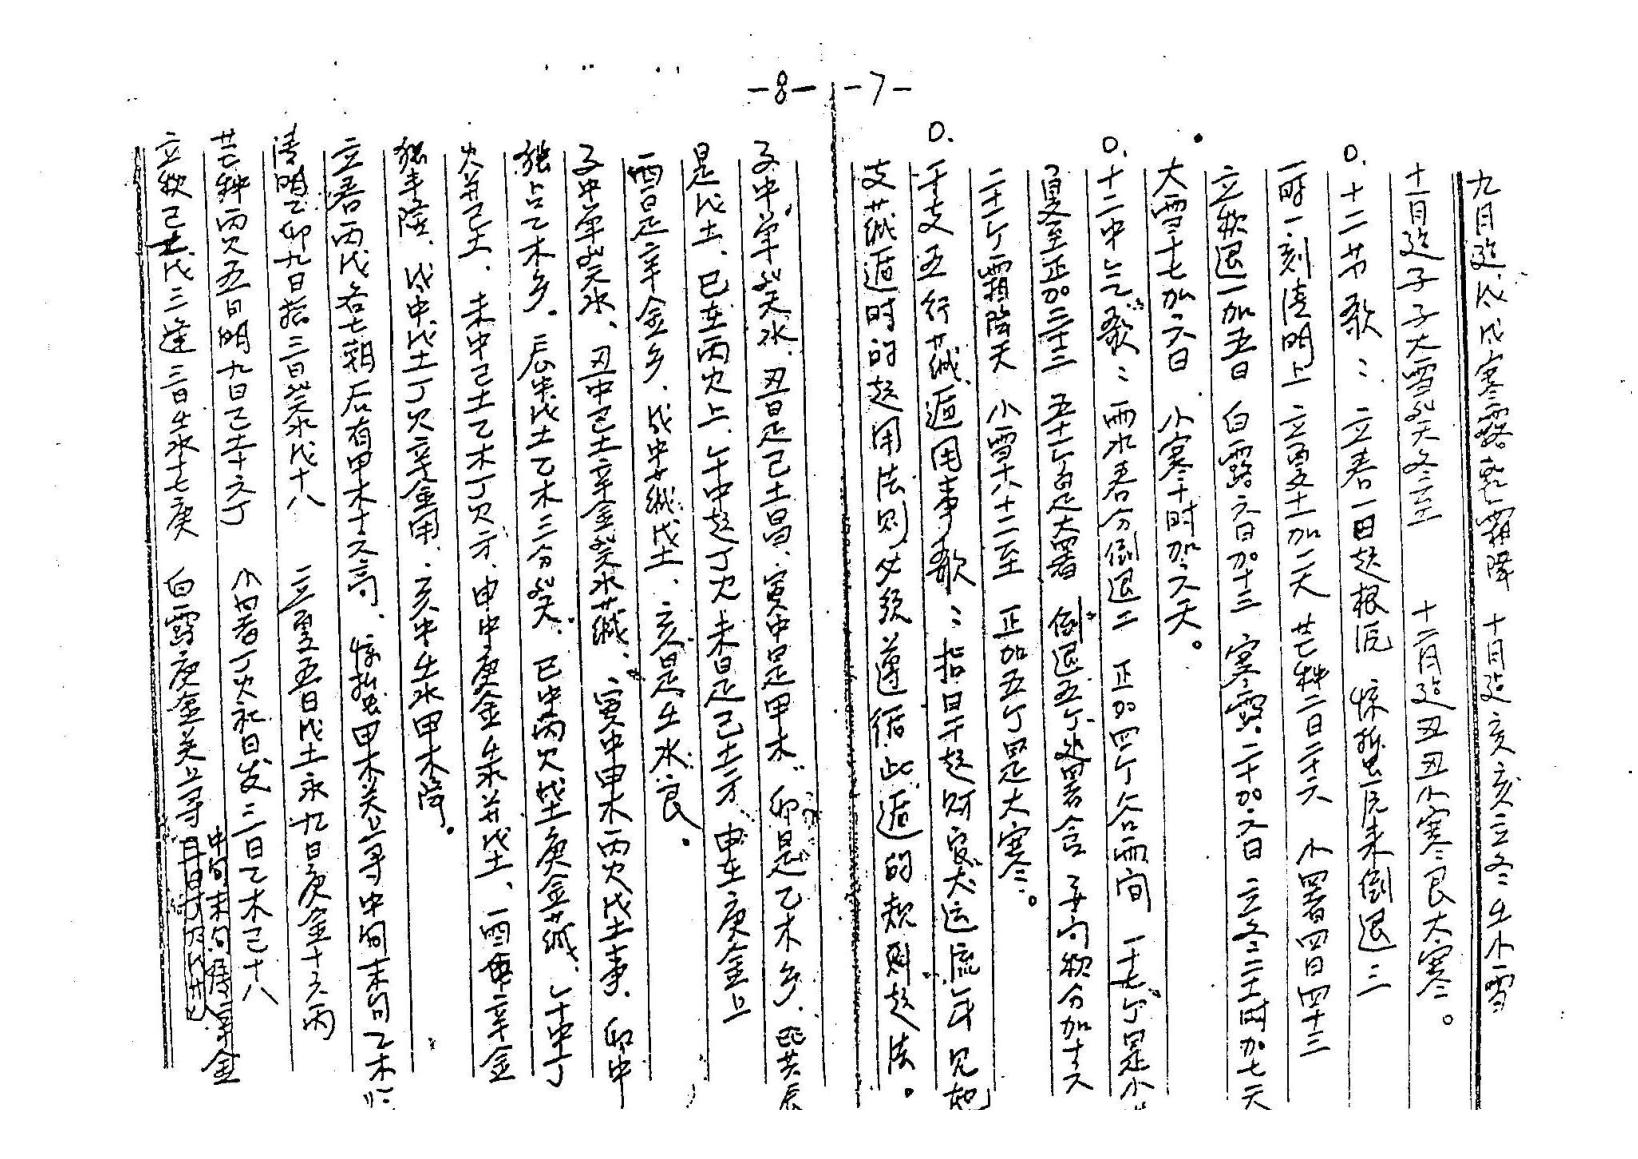 -7-
九月遁戊戌寒露乾霜降 十月遁亥亥立冬壬小雪
十一月遁子子大雪癸冬至 十二月遁丑丑小寒艮大寒。
0.十二节歌：立春一日起根厄 惊蛰一厄来倒退三
一时一刻清明上 立夏十一加一天 芒种二日二十六 小署四日四十三
立秋退一加五日 白露六日加十三 寒露二十加六日 立冬二十二时加七天
大雪二十七加六日 小寒十时加六天。
0.十二中气歌：雨水春分倒退二 正加四个谷雨间 一十七个是小
夏至正加三十三 五十一个是大署 倒退五个处署含 子旬秋分加十六
二十二个霜降天 小雪六十二至 正加五个是大寒。
0.干支五行蔵遁用事歌：指日干起财官大运流年见起
支蔵遁时的起用法则 必须遵循此遁的规则起法。
-8-
子中单癸水、丑是己土昌、寅中是甲木、卯是乙木乡、
是戊土、巳在丙火上、午中起丁火未是己土方、申在庚金上
酉是辛金乡、戌中蔵戊土、亥是壬水良。
子中单癸水、丑中己土辛金癸水蔵、寅中甲木丙火戊土事、卯中
独占乙木乡、辰中戊土乙木三分癸、巳中丙火戊土庚金蔵、午中丁
火并己土、未中己土乙木丁火方、申中庚金壬水并戊土、酉中辛金
独丰隆、戌中戊土丁火辛金用、亥中壬水甲木降。
立春丙戊各七朝 后有甲木十六高、惊蛰甲木关上寻 中旬末旬乙木
清明乙卯九日 三日癸水戊十八 立夏五日戊土永 九日庚金十六丙
芒种丙火五日明 九日己土十六丁 小暑丁火 三日乙木己十八
立秋己土戊三逢 三日壬水七庚 白露庚金关上寻 中旬末旬辛金